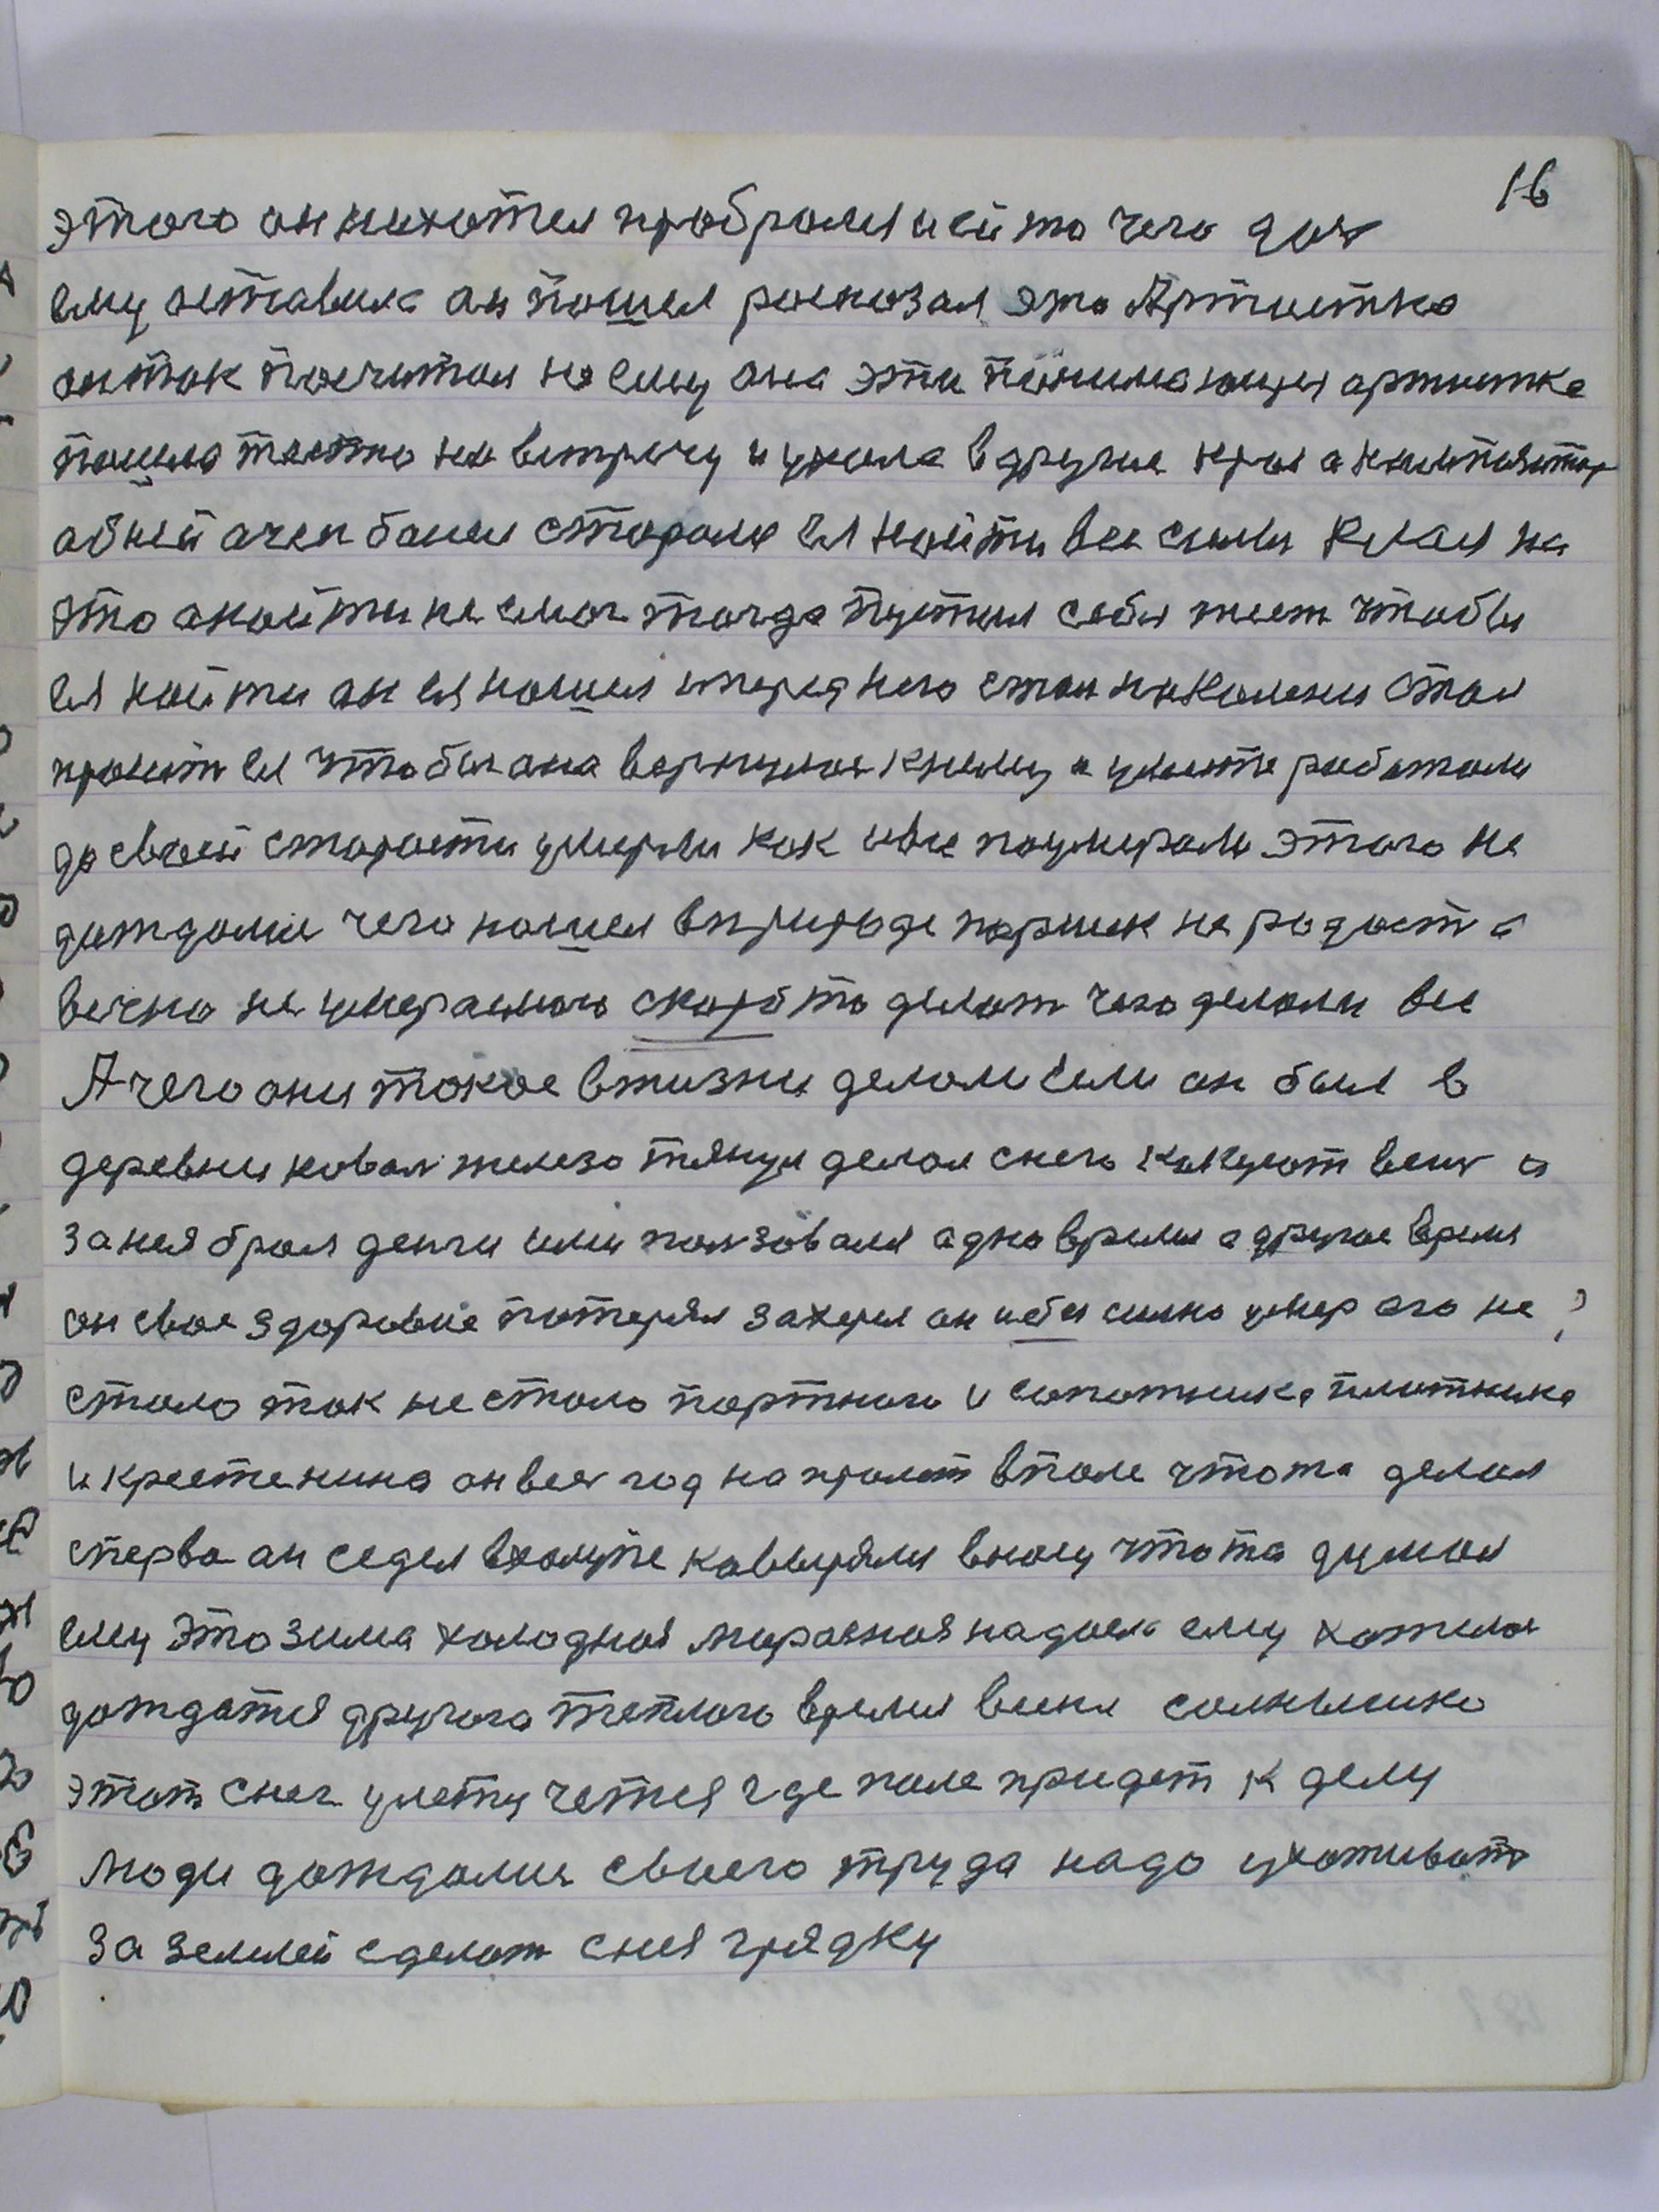 16
этого он нихотел пробрался и ей то чего для
ему оставила он пошел росказал это Артистка
он так посчитал но ему она эти понимающея артистка
пошла тесто на встречу и ухала в другие края а кампазитор
обней ачен балел старался ея найти все силы клал на
это анойти не смог тогда пустил себя жест чтобы
ея найти он ея нашел и перед него стал на колени стал
просит ея чтобы она вернулас книму и умисте работали
до своей старости умирли как и все поумирали этого не
дождалис чего нашел в природе паршик на радаст а
вечно не умераемого скоро то делат чего делали все
А чего они такое в жизни делали если он был в
деревни ковал железо тянул делал с него какуют вещ а
за нея брал денги или ползовался адно время а другое время
он свое здоровие потерял захерел он и обессилно умер его не
стало так не стало портного и сапожника плотника
и крестенина он вес год на пролет в поле чтото делал
сперва он седел в халупе ковырялся в носу чтото думал
ему это зима холодная марозная надоела ему хотелос
дождатся другого теплого время весны солнышко
этот снег улетучется где поле придет к делу
люди дождалис своего труда надо ухаживат
за землей сделат с нея грядку